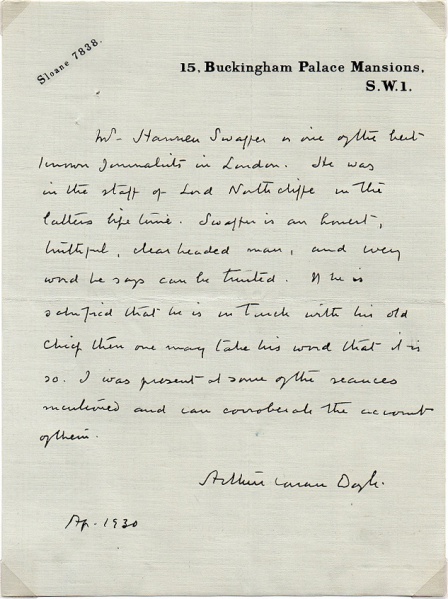 Sloane 7838.
15, Buckingham Palace Mansions,
S.W.1.
Mr Hannen Swaffer is one of the best
known Journalists in London. He was
in the staff of Lord Northcliffe in the
latters life time. Swaffer is an honest,
truthful, clear headed man, and every
word he says can be trusted. If he is
satisfied that he is in touch with his old
chief then one may take his word that it is
so. I was present at some of the seances
mentioned and can corroberate the account
of them.
Arthur Conan Doyle.
Ap. 1930